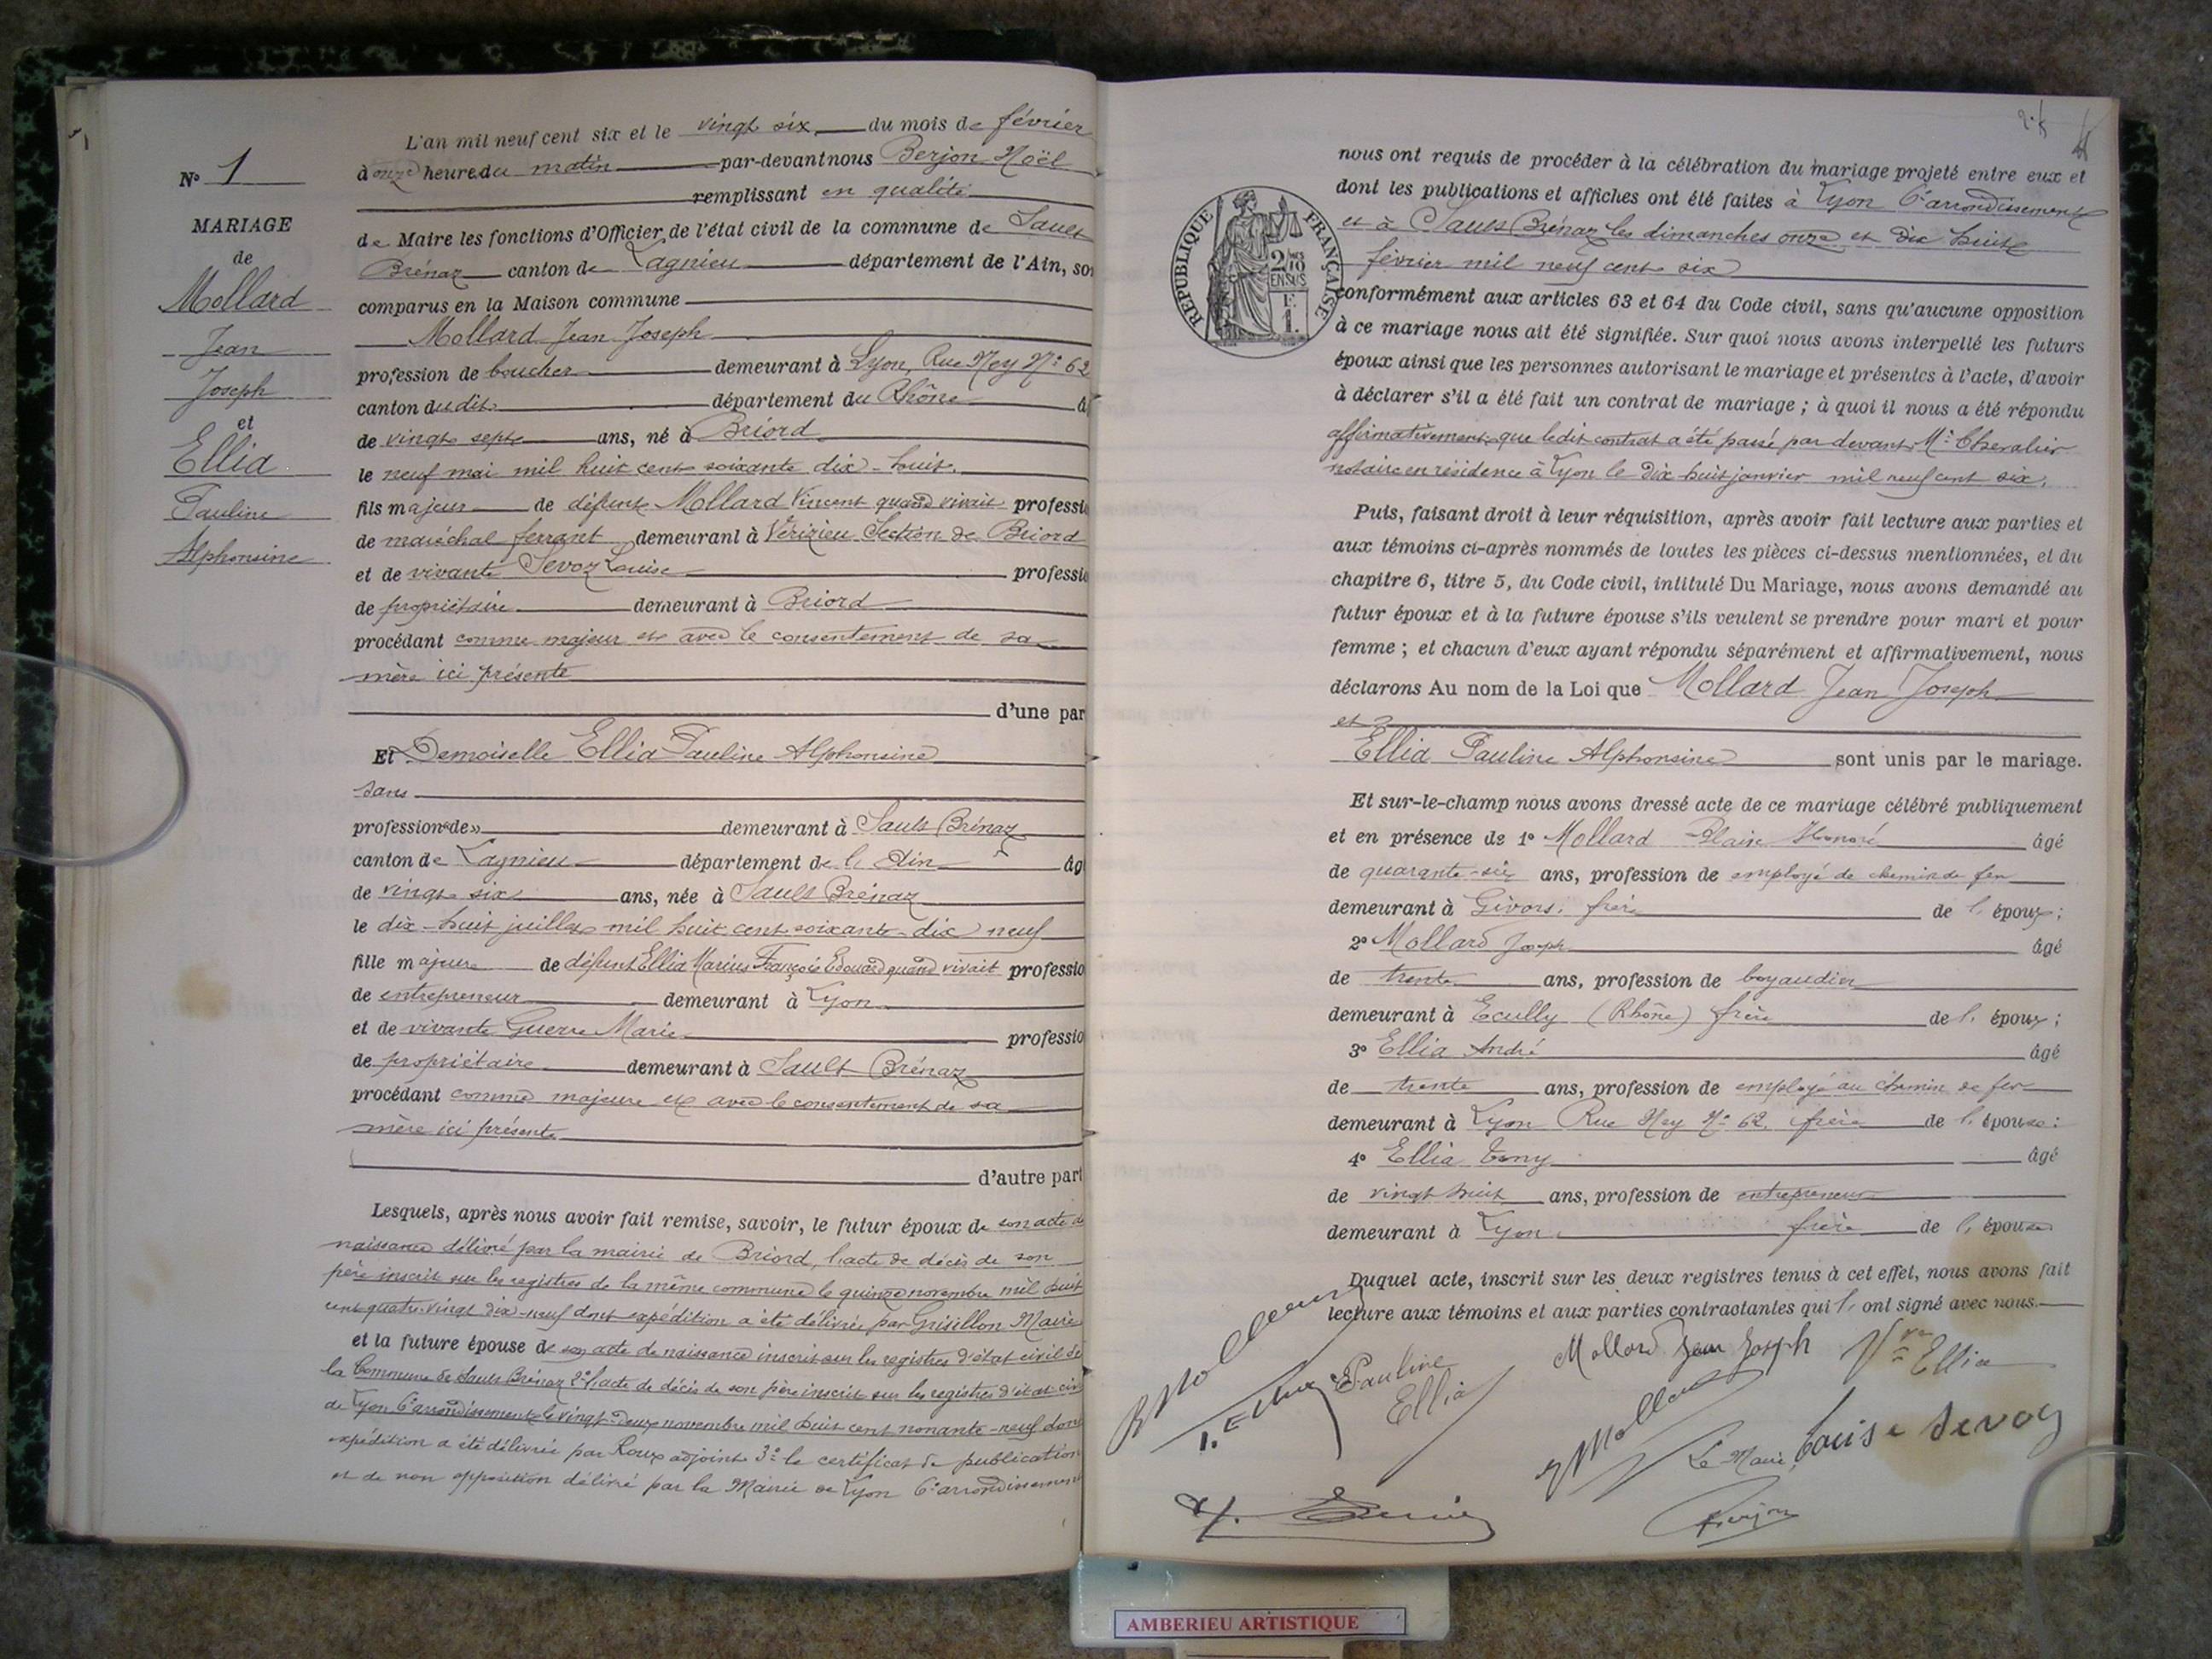 N° 1
MARIAGE
de
Mollard
Jean
Joseph
et
Ellia
Pauline
Alphonsine
L'an mil neuf cent six et le vingt six du mois de février
à onze heure du matin par-devant nous Berjon Noël
remplissant en qualité
de Maire les fonctions d'Officier de l'état civil de la commune de Sault
Brénaz canton de Lagnieu département de l'Ain, so
comparus en la Maison commune
Mollard Jean Joseph
profession de boucher demeurant à Lyon, Rue Ney N° 62
canton du dit département du Rhône â
de vingt sept ans, né à Briord
le neuf mai mil huit cent soixante dix-huit.
fils majeur de défunt Mollard Vincent quand vivait professi
de maréchal ferrant demeurant à Vérizieu Section de Briord
et de vivante Sevoz Louise professi
de propriétaire demeurant à Briord
procédant comme majeur et avec le consentement de sa
mère ici présente
d'une par
Et Demoiselle Ellia Pauline Alphonsine
sans
profession «de» demeurant à Sault Brénaz
canton de Lagnieu département de l'Ain âg
de vingt six ans, née à Sault Brénaz
le dix-huit juillet mil huit cent soixante-dix neuf
fille majeure de défunt Ellia Marius François Edouard quand vivait professio
de entrepreneur demeurant à Lyon
et de vivante Guerre Marie professio
de propriétaire demeurant à Sault Brénaz
procédant comme majeure et avec le consentement de sa
mère ici présente
d'autre part
Lesquels, après nous avoir fait remise, savoir, le futur époux de son acte de
naissance délivré par la mairie de Briord, l'acte de décès de son
père inscrit sur les registres de la même commune le quinze novembre mil huit
cent quatre vingt dix-neuf dont expédition a été délivrée par Grisillon Maire
et la future épouse de son acte de naissance inscrit sur les registres d'état civil de
la Commune de Sault Brénaz 2° l'acte de décès de son père inscrit sur les registres d'état civ
de Lyon 6e arrondissement le vingt-deux novembre mil huit cent nonante-neuf dont
expédition a été délivrée par Roux adjoint 3° le certificat de publication
et de non opposition délivré par la Mairie de Lyon 6e arrondissement
nous ont requis de procéder à la célébration du mariage projeté entre eux et
dont les publications et affiches ont été faites à Lyon 6e arrondissement
et à Sault Brénaz les dimanches onze et dix huit
février mil neuf cent six
RÉPUBLIQUE FRANÇAISE
2/10
EN SUS
F.
1.
conformément aux articles 63 et 64 du Code civil, sans qu'aucune opposition
à ce mariage nous ait été signifiée. Sur quoi nous avons interpellé les futurs
époux ainsi que les personnes autorisant le mariage et présentes à l'acte, d'avoir
à déclarer s'il a été fait un contrat de mariage ; à quoi il nous a été répondu
affirmativement que ledit contrat a été passé par devant Me Chevalier
notaire en résidence à Lyon le dix-huit janvier mil neuf cent six.
Puis, faisant droit à leur réquisition, après avoir fait lecture aux parties et
aux témoins ci-après nommés de toutes les pièces ci-dessus mentionnées, et du
chapitre 6, titre 5, du Code civil, intitulé Du Mariage, nous avons demandé au
futur époux et à la future épouse s'ils veulent se prendre pour mari et pour
femme ; et chacun d'eux ayant répondu séparément et affirmativement, nous
déclarons Au nom de la Loi que Mollard Jean Joseph
et
Ellia Pauline Alphonsine sont unis par le mariage.
Et sur-le-champ nous avons dressé acte de ce mariage célébré publiquement
et en présence de 1° Mollard Blaise Honoré âgé
de quarante-six ans, profession de employé de chemin de fer
demeurant à Givors, frère de l' époux ;
2° Mollard Joseph âgé
de trente ans, profession de boyaudier
demeurant à Ecully (Rhône) frère de l' époux ;
3° Ellia André âgé
de trente ans, profession de employé au chemin de fer
demeurant à Lyon Rue Ney N° 62, frère de l' épouse :
4° Ellia Tony âgé
de vingt huit ans, profession de entrepreneur
demeurant à Lyon frère de l' épouse
Duquel acte, inscrit sur les deux registres tenus à cet effet, nous avons fait
lecture aux témoins et aux parties contractantes qui l' ont signé avec nous.
B Mollard
Pauline
Ellia
Mollard Jean Joseph
Vve Ellia
J Mollard
Le Maire, Louise Sevoz
Berjon
AMBERIEU ARTISTIQUE